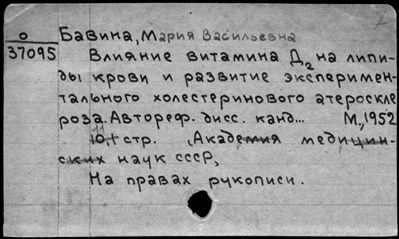 О
37095
Бавина, Мария Васильевна
Влияние витамина Д2 на липи-
ды крови и развитие эксперимен-
тального холестеринового атероскле
роза. Автореф. дисс. канд... М., 1952
11 стр. Академия медицин-
ских наук СССР,
На правах рукописи.